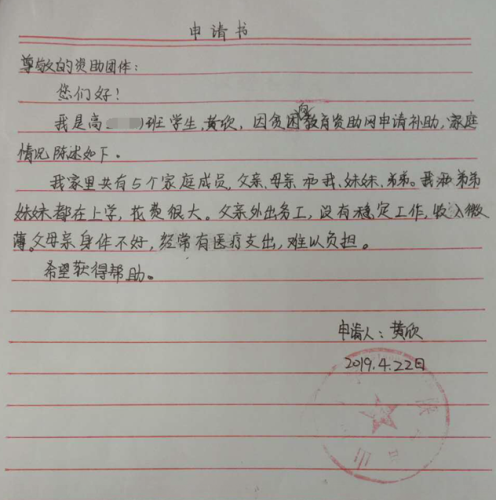 申请书
尊敬的资助团体：
您们好！
我是高 班学生，黄欣，因贫困向教育资助网申请补助，家庭
情况陈述如下。
我家里共有5个家庭成员，父亲、母亲和我、妹妹、弟弟。我和弟弟
妹妹都在上学，花费很大。父亲外出务工，没有稳定工作，收入微
薄。父母亲身体不好，经常有医疗支出，难以负担。
希望获得帮助。
申请人：黄欣
2019.4.22日